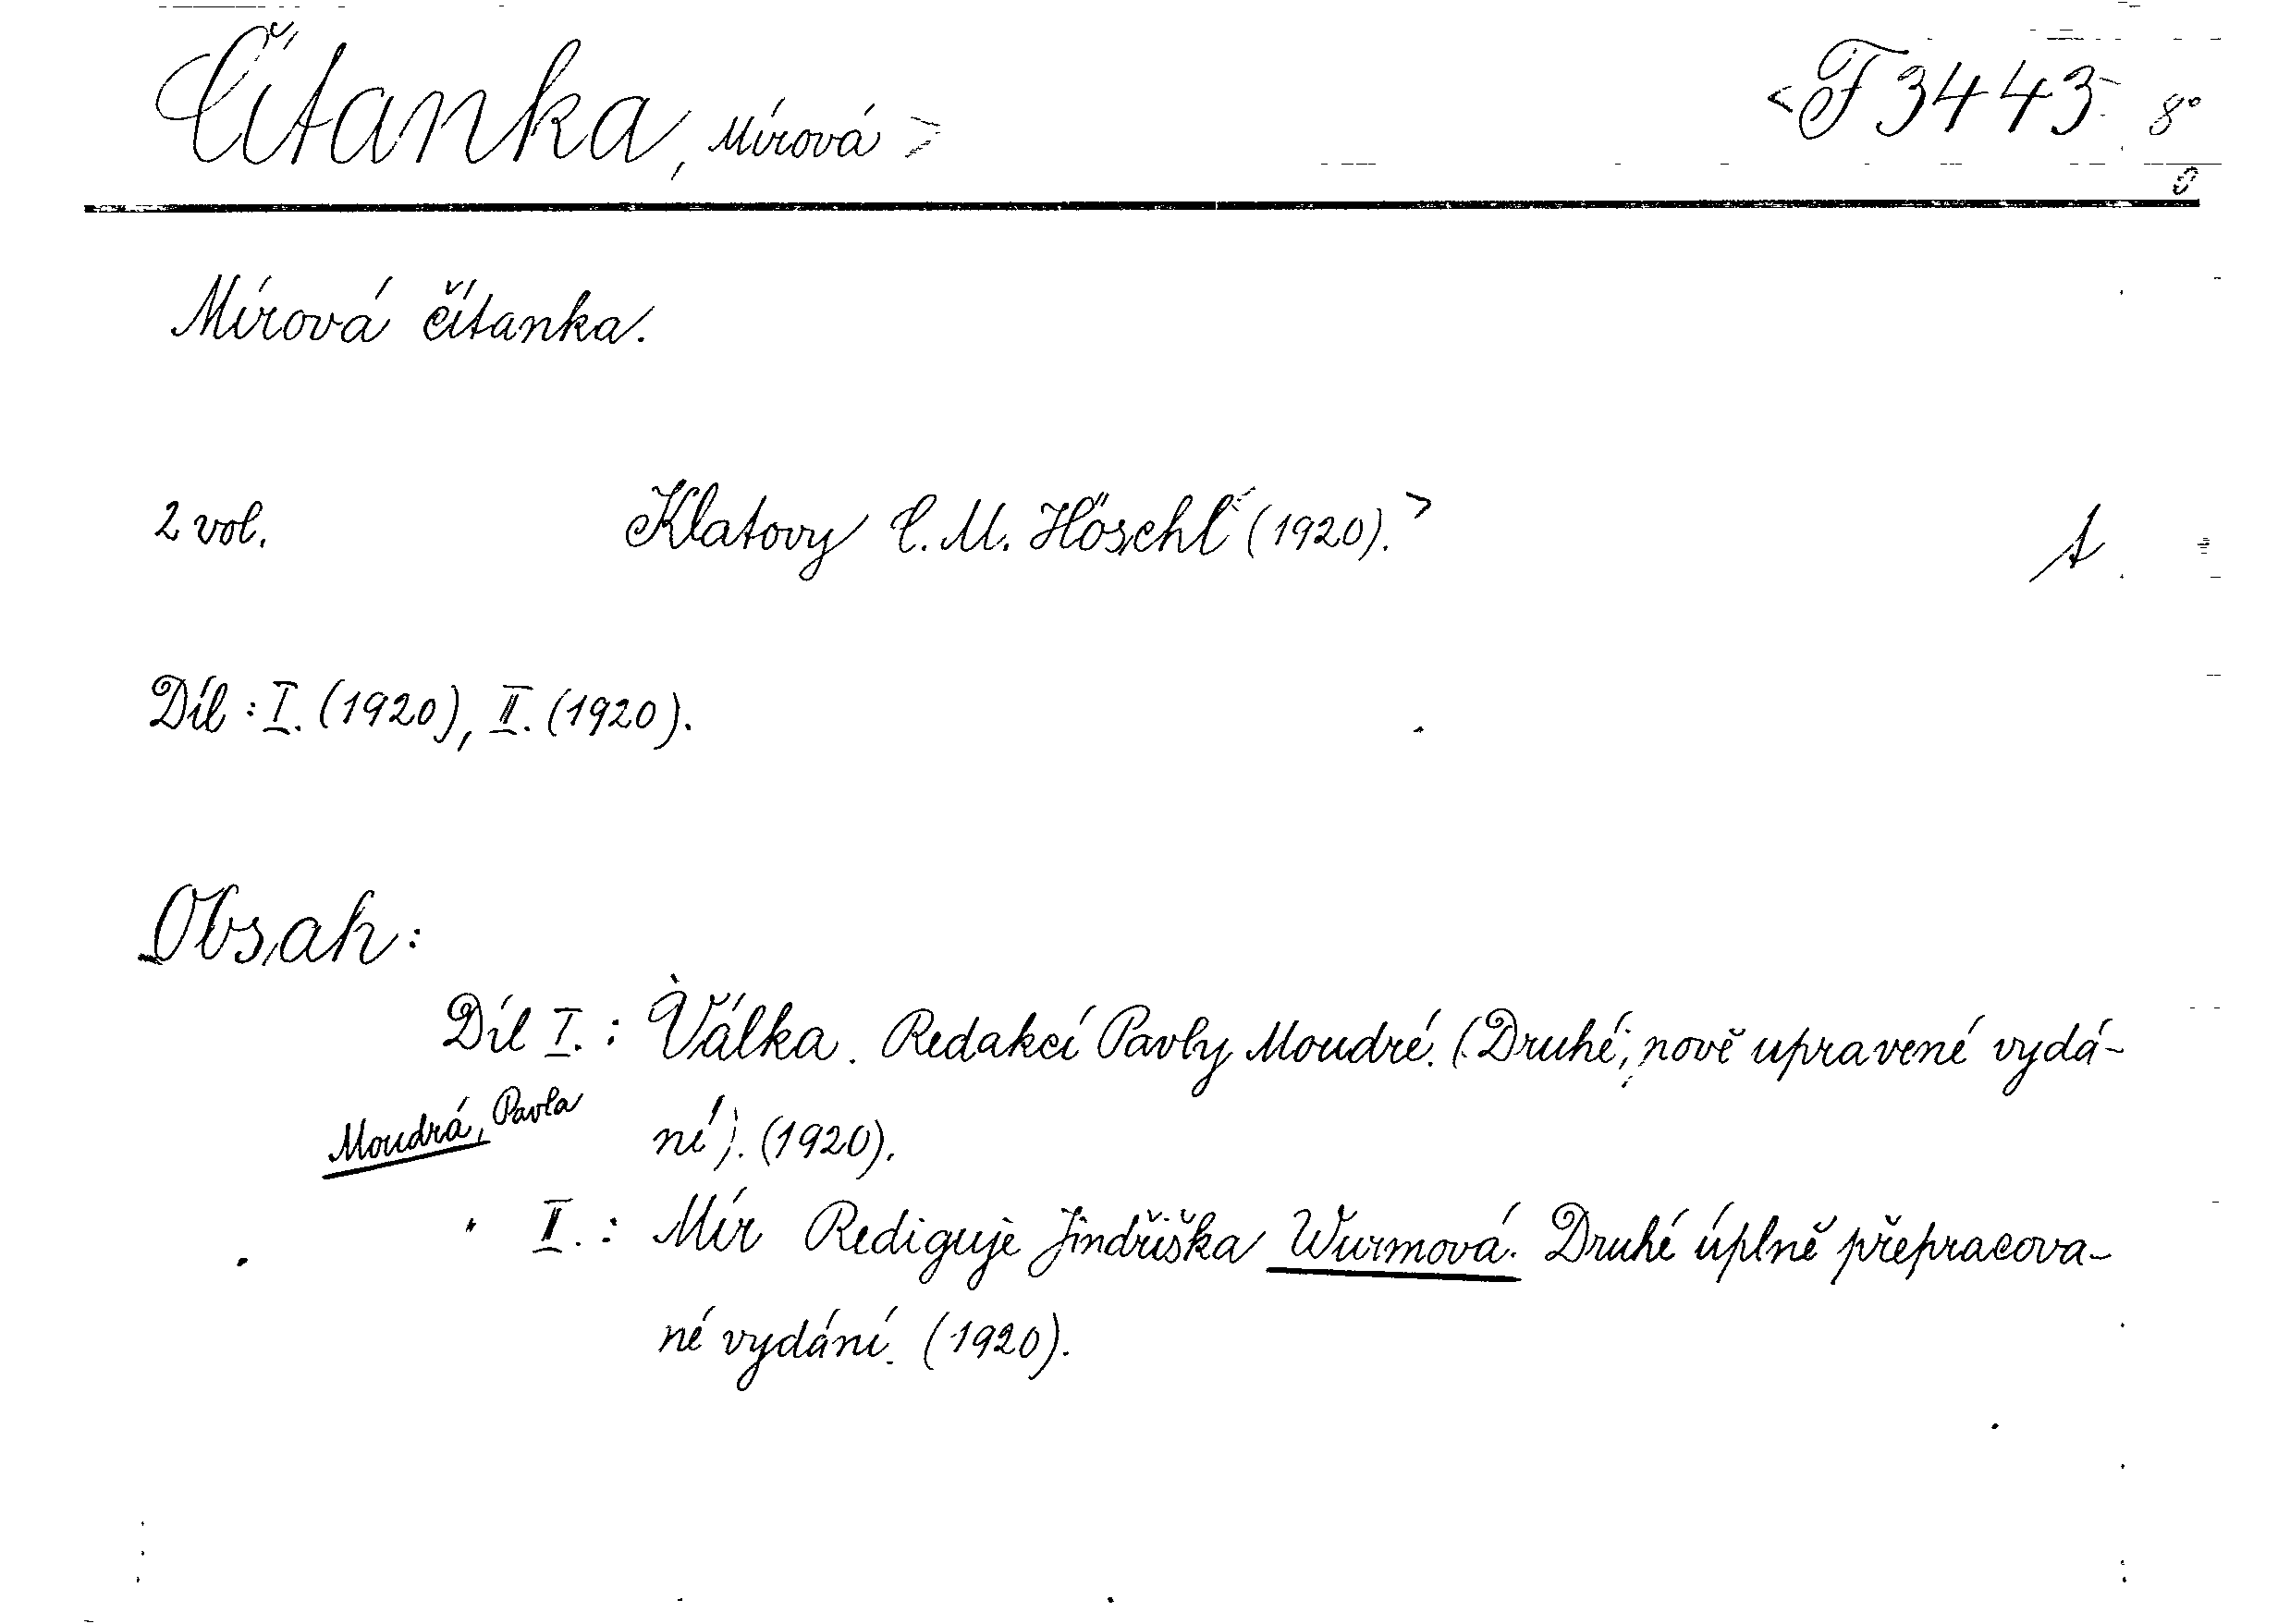 Čítanka, Mírová > <F 3443 8°
Mírová čítanka.
2 vol. Klatovy Č. M. Höschl (1920).>
Díl : I. (1920), II. (1920).
Obsah:
Díl I. : Válka. Redakcí Pavly Moudré. (Druhé, nově upravené vydá-
Moudrá, Pavla
ní). (1920).
" II. : Mír Rediguje Jindřiška Wurmová. Druhé úplně přepracova-
né vydání. (1920).